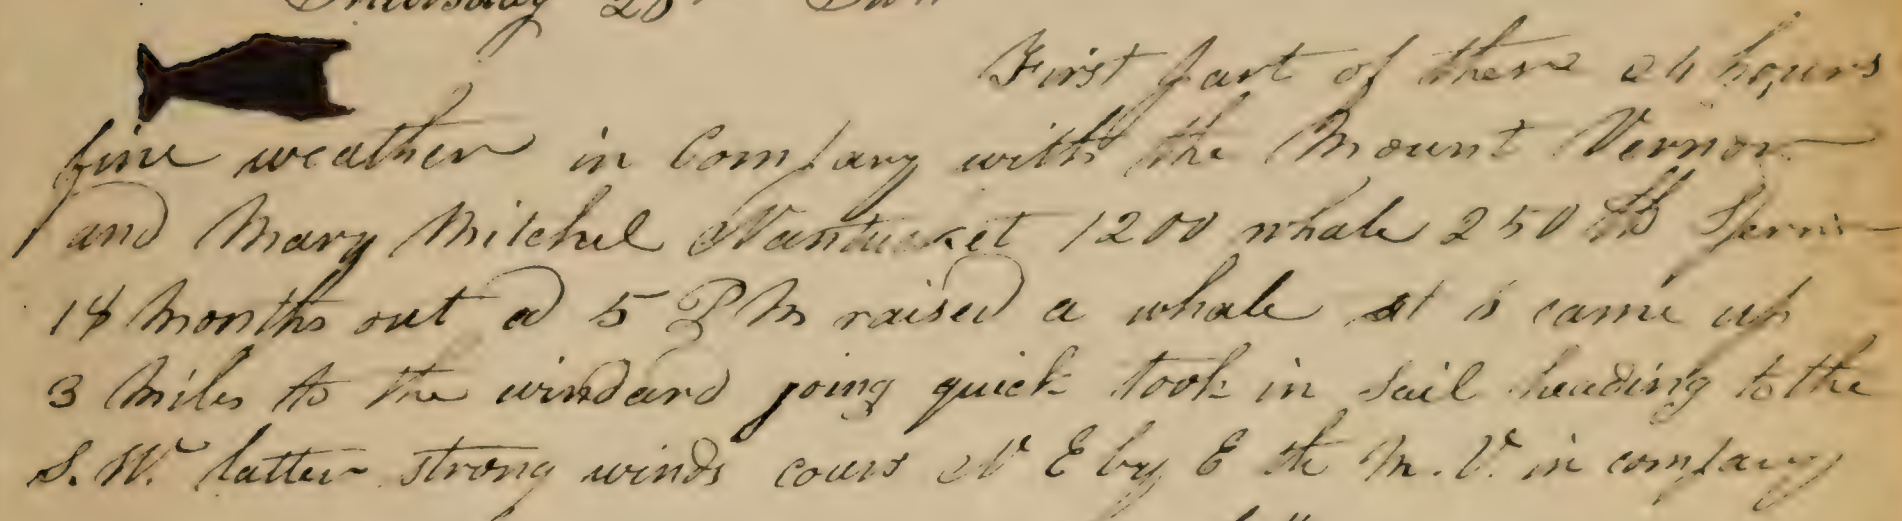 Thursday 28th
First part of these 24 hours
fine weather in Company with the Mount Vernon
and Mary Mitchel Nantucket 1200 whale 250 Sperm
18 Months out a 5 PM raised a whale at 6 came up
3 Miles to the windard going quick took in sail heading to the
S. W. latter strong winds cours N E by E the M. V. in company